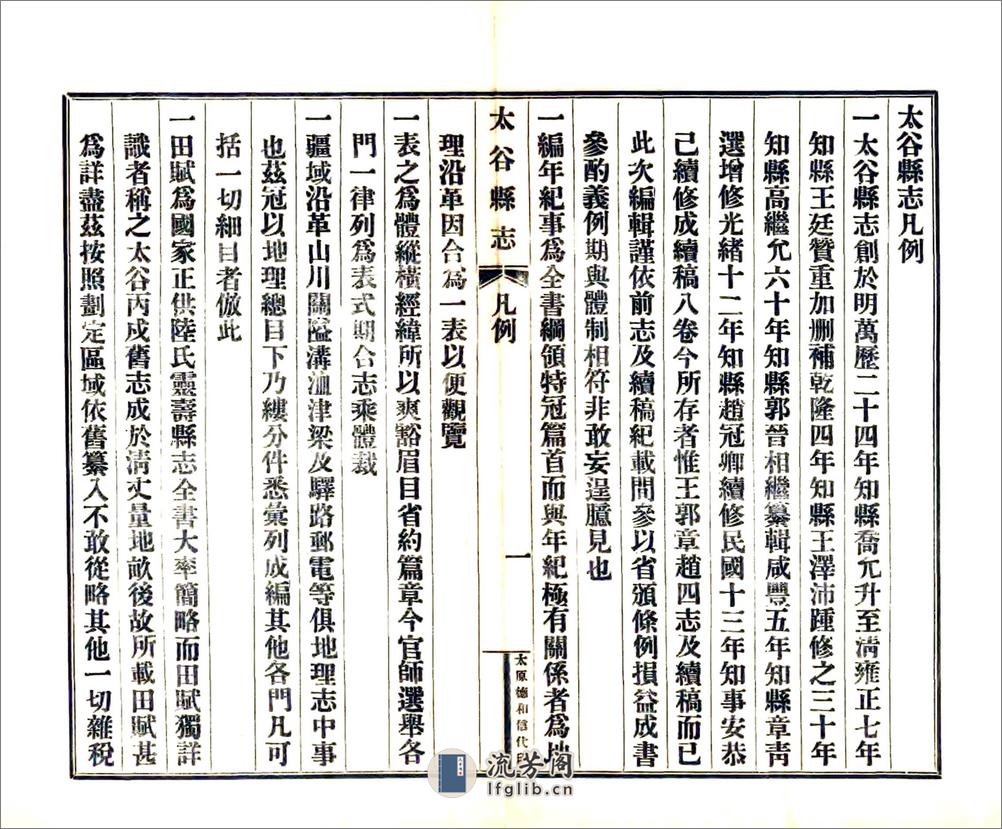 太谷縣志凡例
一太谷縣志創於明萬歷二十四年知縣喬允升至淸雍正七年
知縣王廷贊重加删補乾隆四年知縣王澤沛踵修之三十年
知縣高繼允六十年知縣郭晉相繼纂輯咸豐五年知縣章靑
選增修光緒十二年知縣趙冠卿續修民國十三年知事安恭
己續修成續稿八卷今所存者惟王郭章趙四志及續稿而已
此次編輯謹依前志及續稿紀載間參以省頒條例損益成書
參酌義例期與體制相符非敢妄逞臆見也
一編年紀事爲全書綱領特冠篇首而與年紀極有關係者爲地
太谷縣志
凡例
一
太原德和信代印
理沿革因合爲一表以便觀覽
一表之爲體縱橫經緯所以爽豁眉目省約篇章今官師選舉各
門一律列爲表式期合志乘體裁
一疆域沿革山川關隘溝洫津梁及驛路郵電等俱地理志中事
也茲冠以地理總目下乃縷分件悉彙列成編其他各門凡可
括一切細目者倣此
一田賦爲國家正供陸氏靈壽縣志全書大率簡略而田賦獨詳
識者稱之太谷丙戍舊志成於淸丈量地畝後故所載田賦甚
爲詳盡茲按照劃定區域依舊纂入不敢從略其他一切雜稅
流芳阁
lfglib.cn